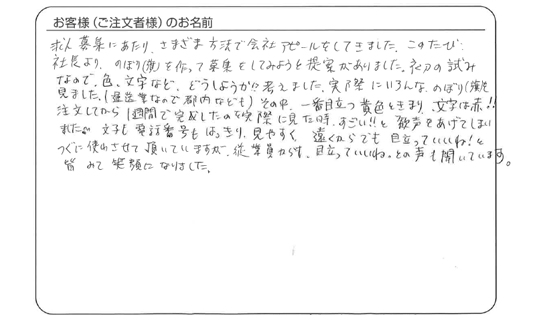 お客様（ご注文者様）のお名前
求人募集にあたり、さまざま方法で会社アピールをしてきました。このたび
社長より、のぼり(旗)を作って募集をしてみようと提案がありました。初の試み
なので、色、文字など、どうしようか!? 考えました。実際にいろんな、のぼり(旗)を
見ました。(運送業なので都内なども)その中、一番目立つ黄色をきまり、文字は赤!!
注文してから1週間で完成したの実際に見た時、すごい!!と歓声をあげてしまい
ましたm 文字も電話番号もはっきり、見やすく 遠くからでも目立っていいね!と
つぐに使わさせて頂いていますが、従業員からも、目立っていいね。との声も聞いています。
皆 みて笑顔になりました。